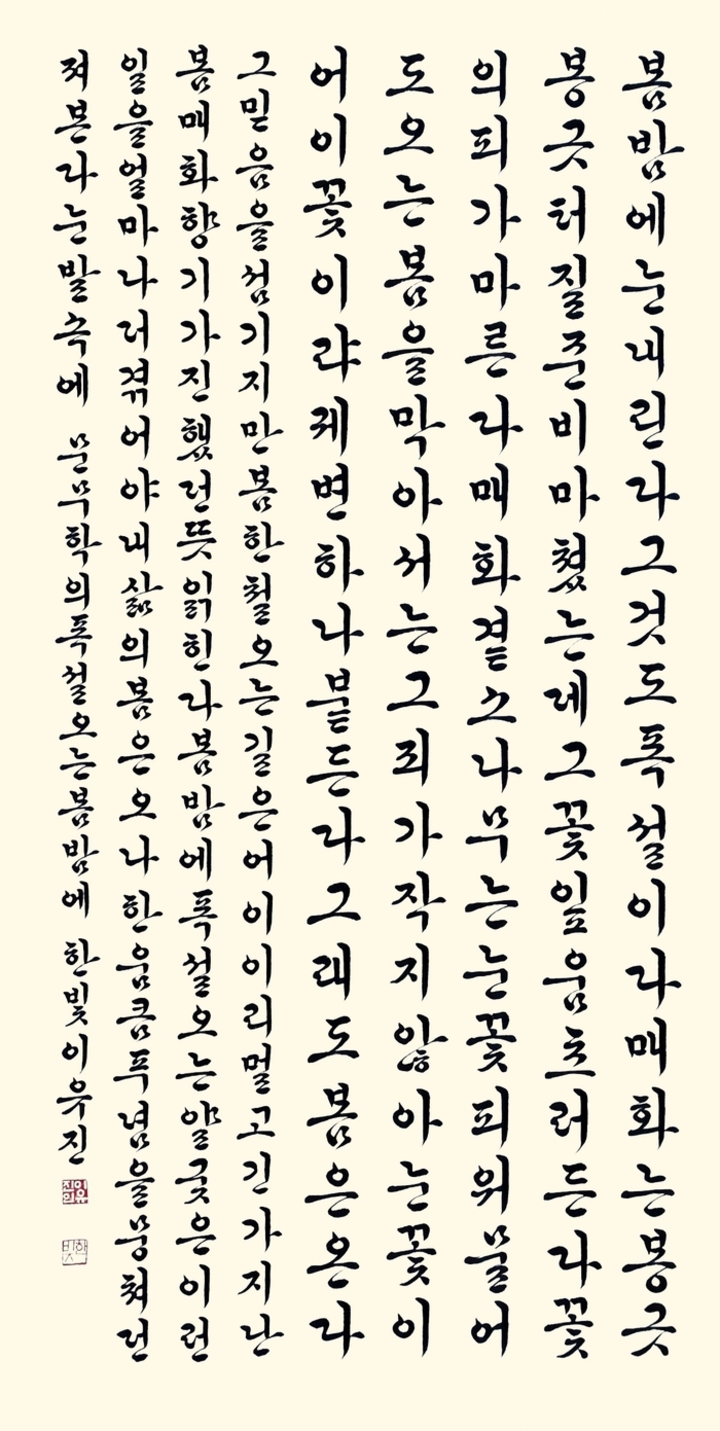 봄밤에눈내린라그것도폭설이라매화는봉긋
봉긋터질준비마쳤는데그꽃잎움츠러든라꽃
의피가마른라매화곁소나무는눈꽃피워물어
도오는봄을막아서는그죄가작지않아눈꽃이
어이꽃이랴궤변하나붙든라그래도봄은온라
그믿음을섬기지만봄한철오는길은어이이리멀고긴가지난
봄매화향기가진했던뜻읽힌라봄밤에폭설오는얄궂은이런
일을얼마나더겪어야내삶의봄은오나한움큼푸념을뭉쳐던
져본라눈발속에 문무학의폭설오는봄밤에 한빛이유진
이유진인
한빛